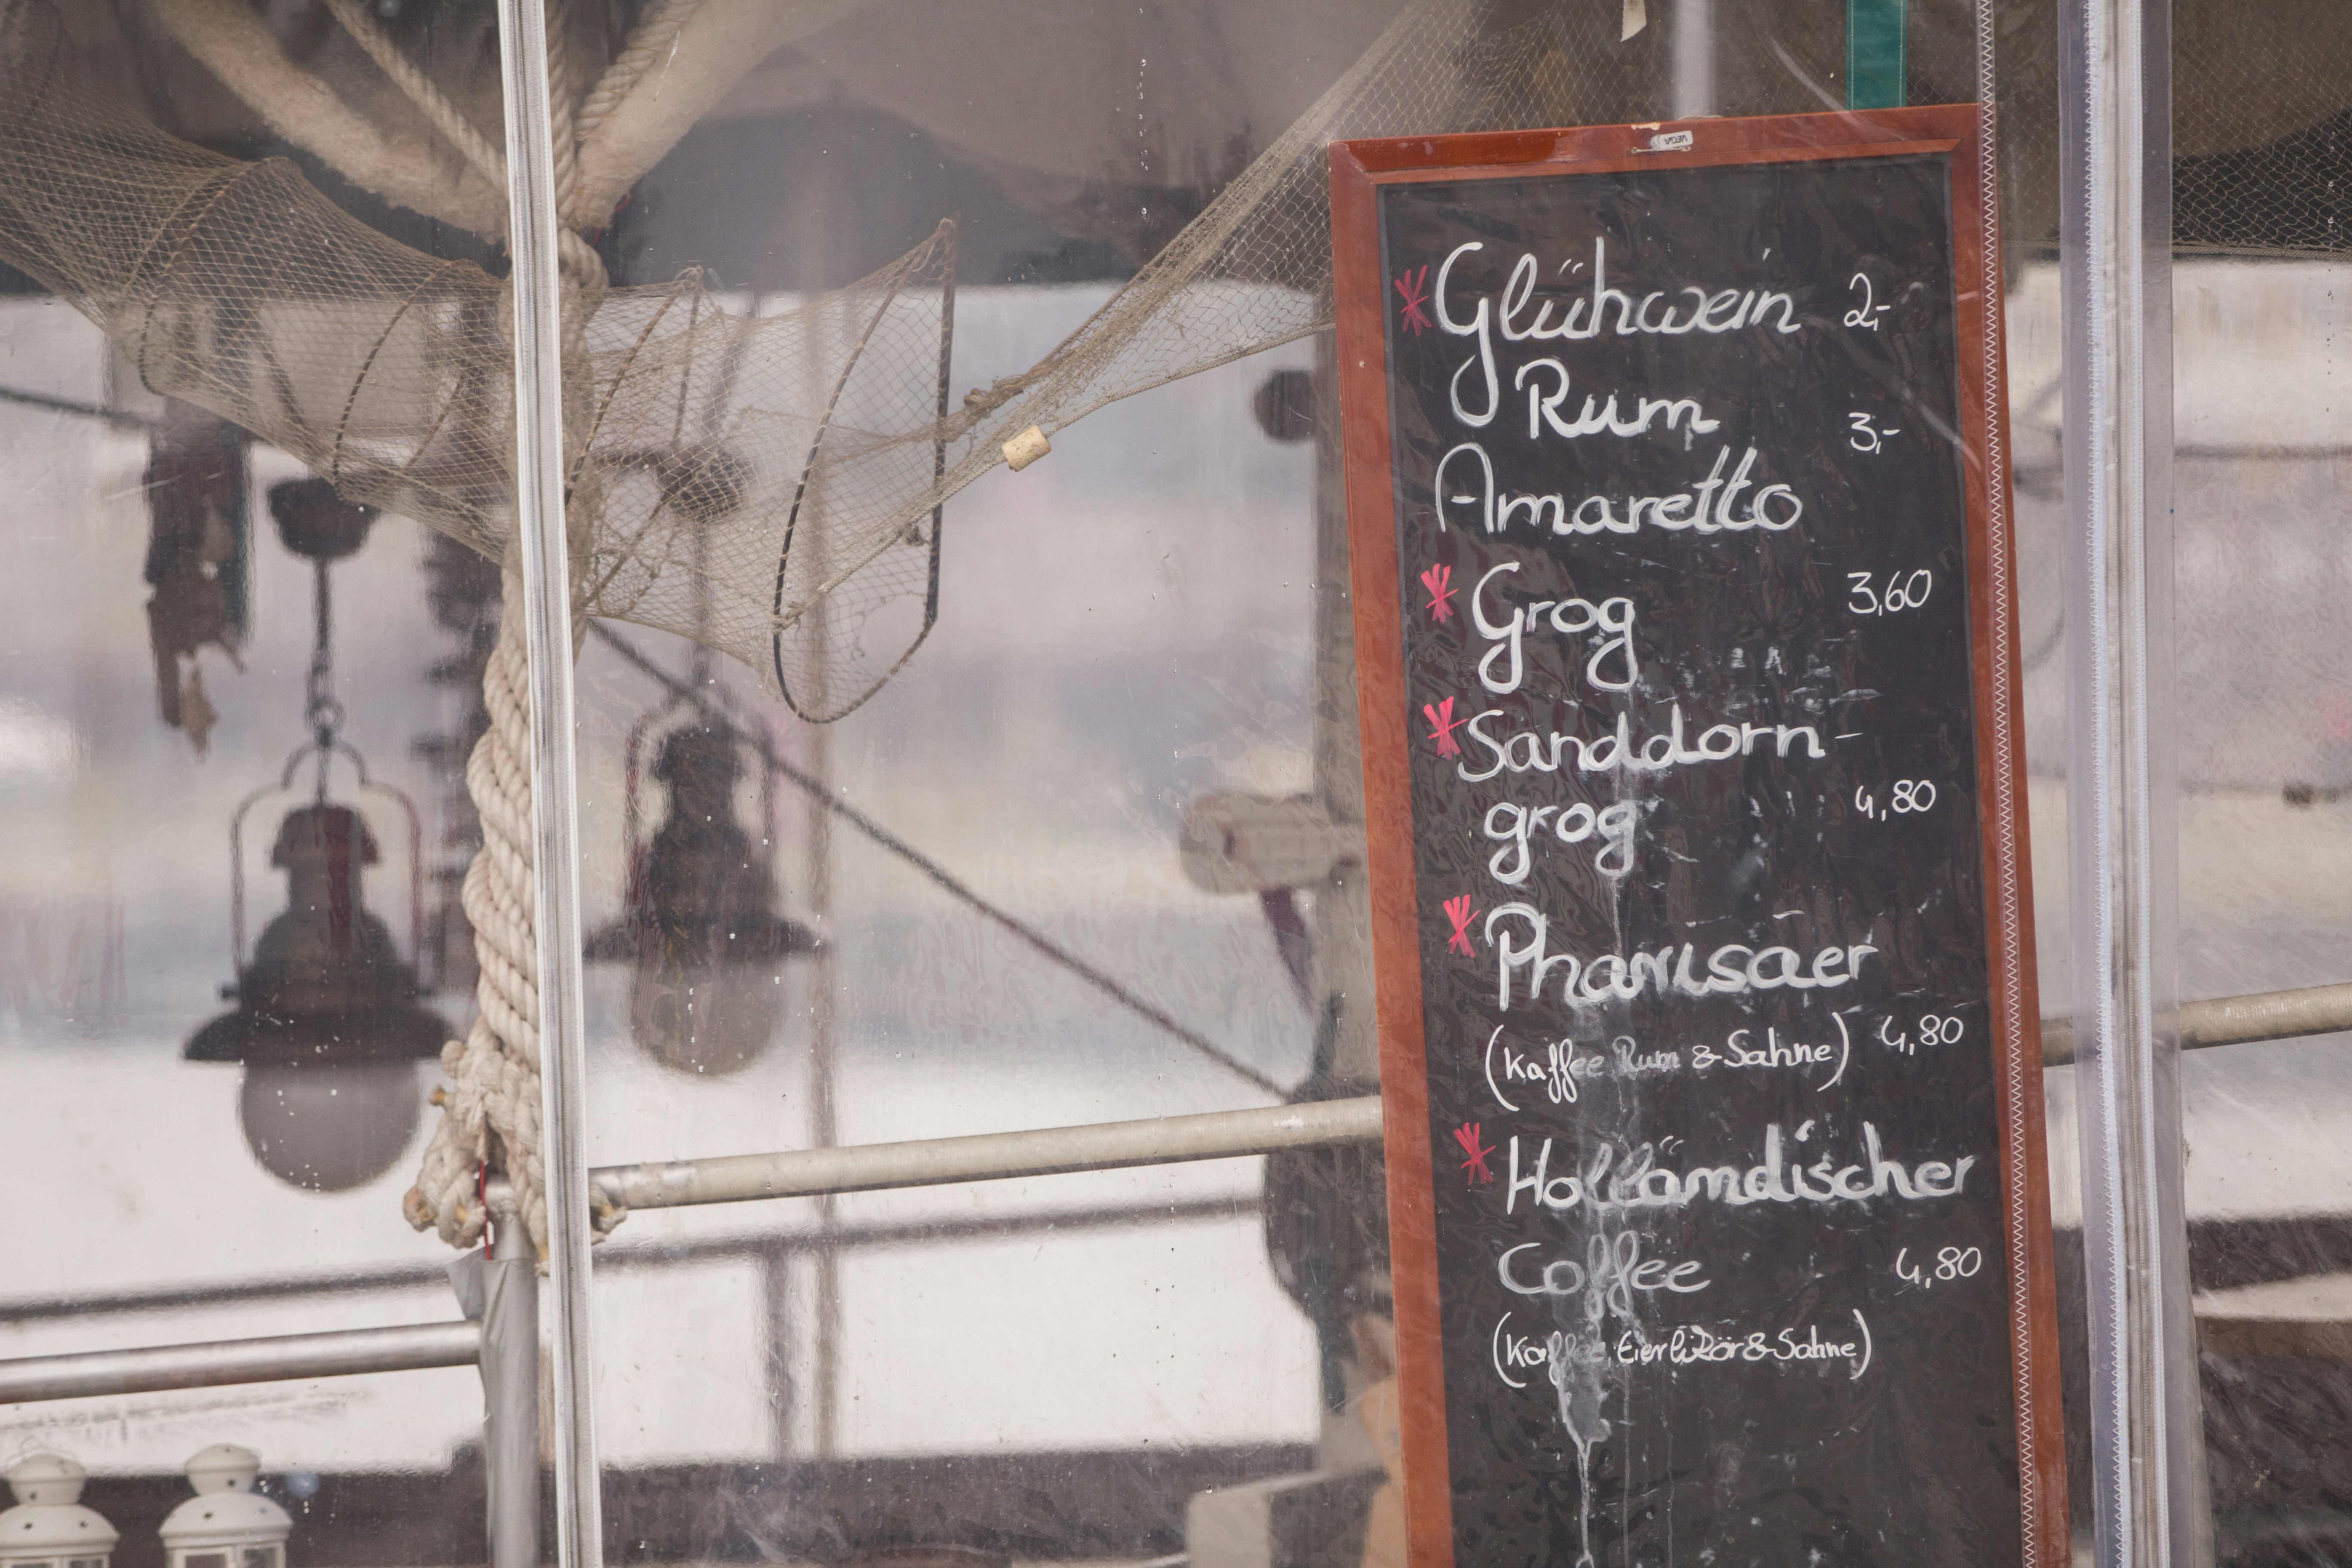 VEGA
* Glühwein 2,-
Rum 3,-
Amaretto
* Grog 3,60
* Sanddorn-
grog 4,80
* Pharisäer
(Kaffee Rum & Sahne) 4,80
* Holländischer
Coffee 4,80
(Kaffee, Eierlikör & Sahne)